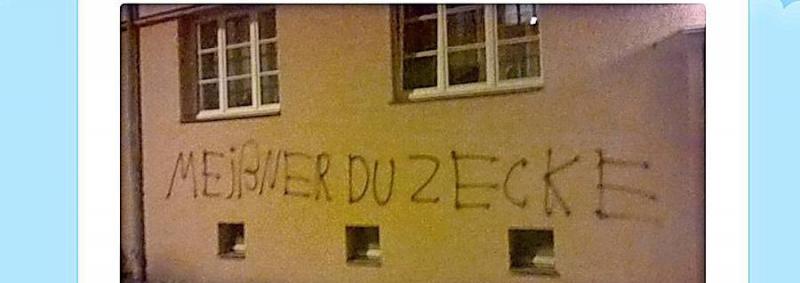 MEißNER DU ZECKE